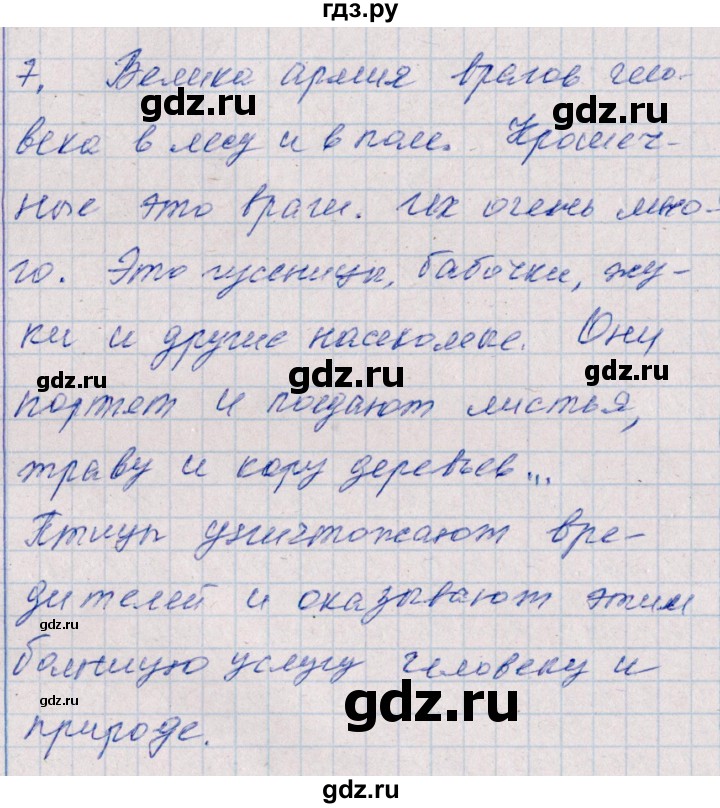 гдз.ру
7. Велика армия врагов чело-
gdz.ru
gdz.ru
века в лесу и в поле. Кромеч-
ные это враги. Их очень мно-
го. Это гусеницы, бабочки, жу-
ки и другие насекомые. Они
gdz.ru
gdz.ru
gdz.ru
портят и поедают листья,
траву и кору деревьев...
Птицы уничтожают вре-
дителей и оказывают этим
gdz.ru
большую услугу человеку и
gdz.ru
gdz.ru
природе.
gdz.ru